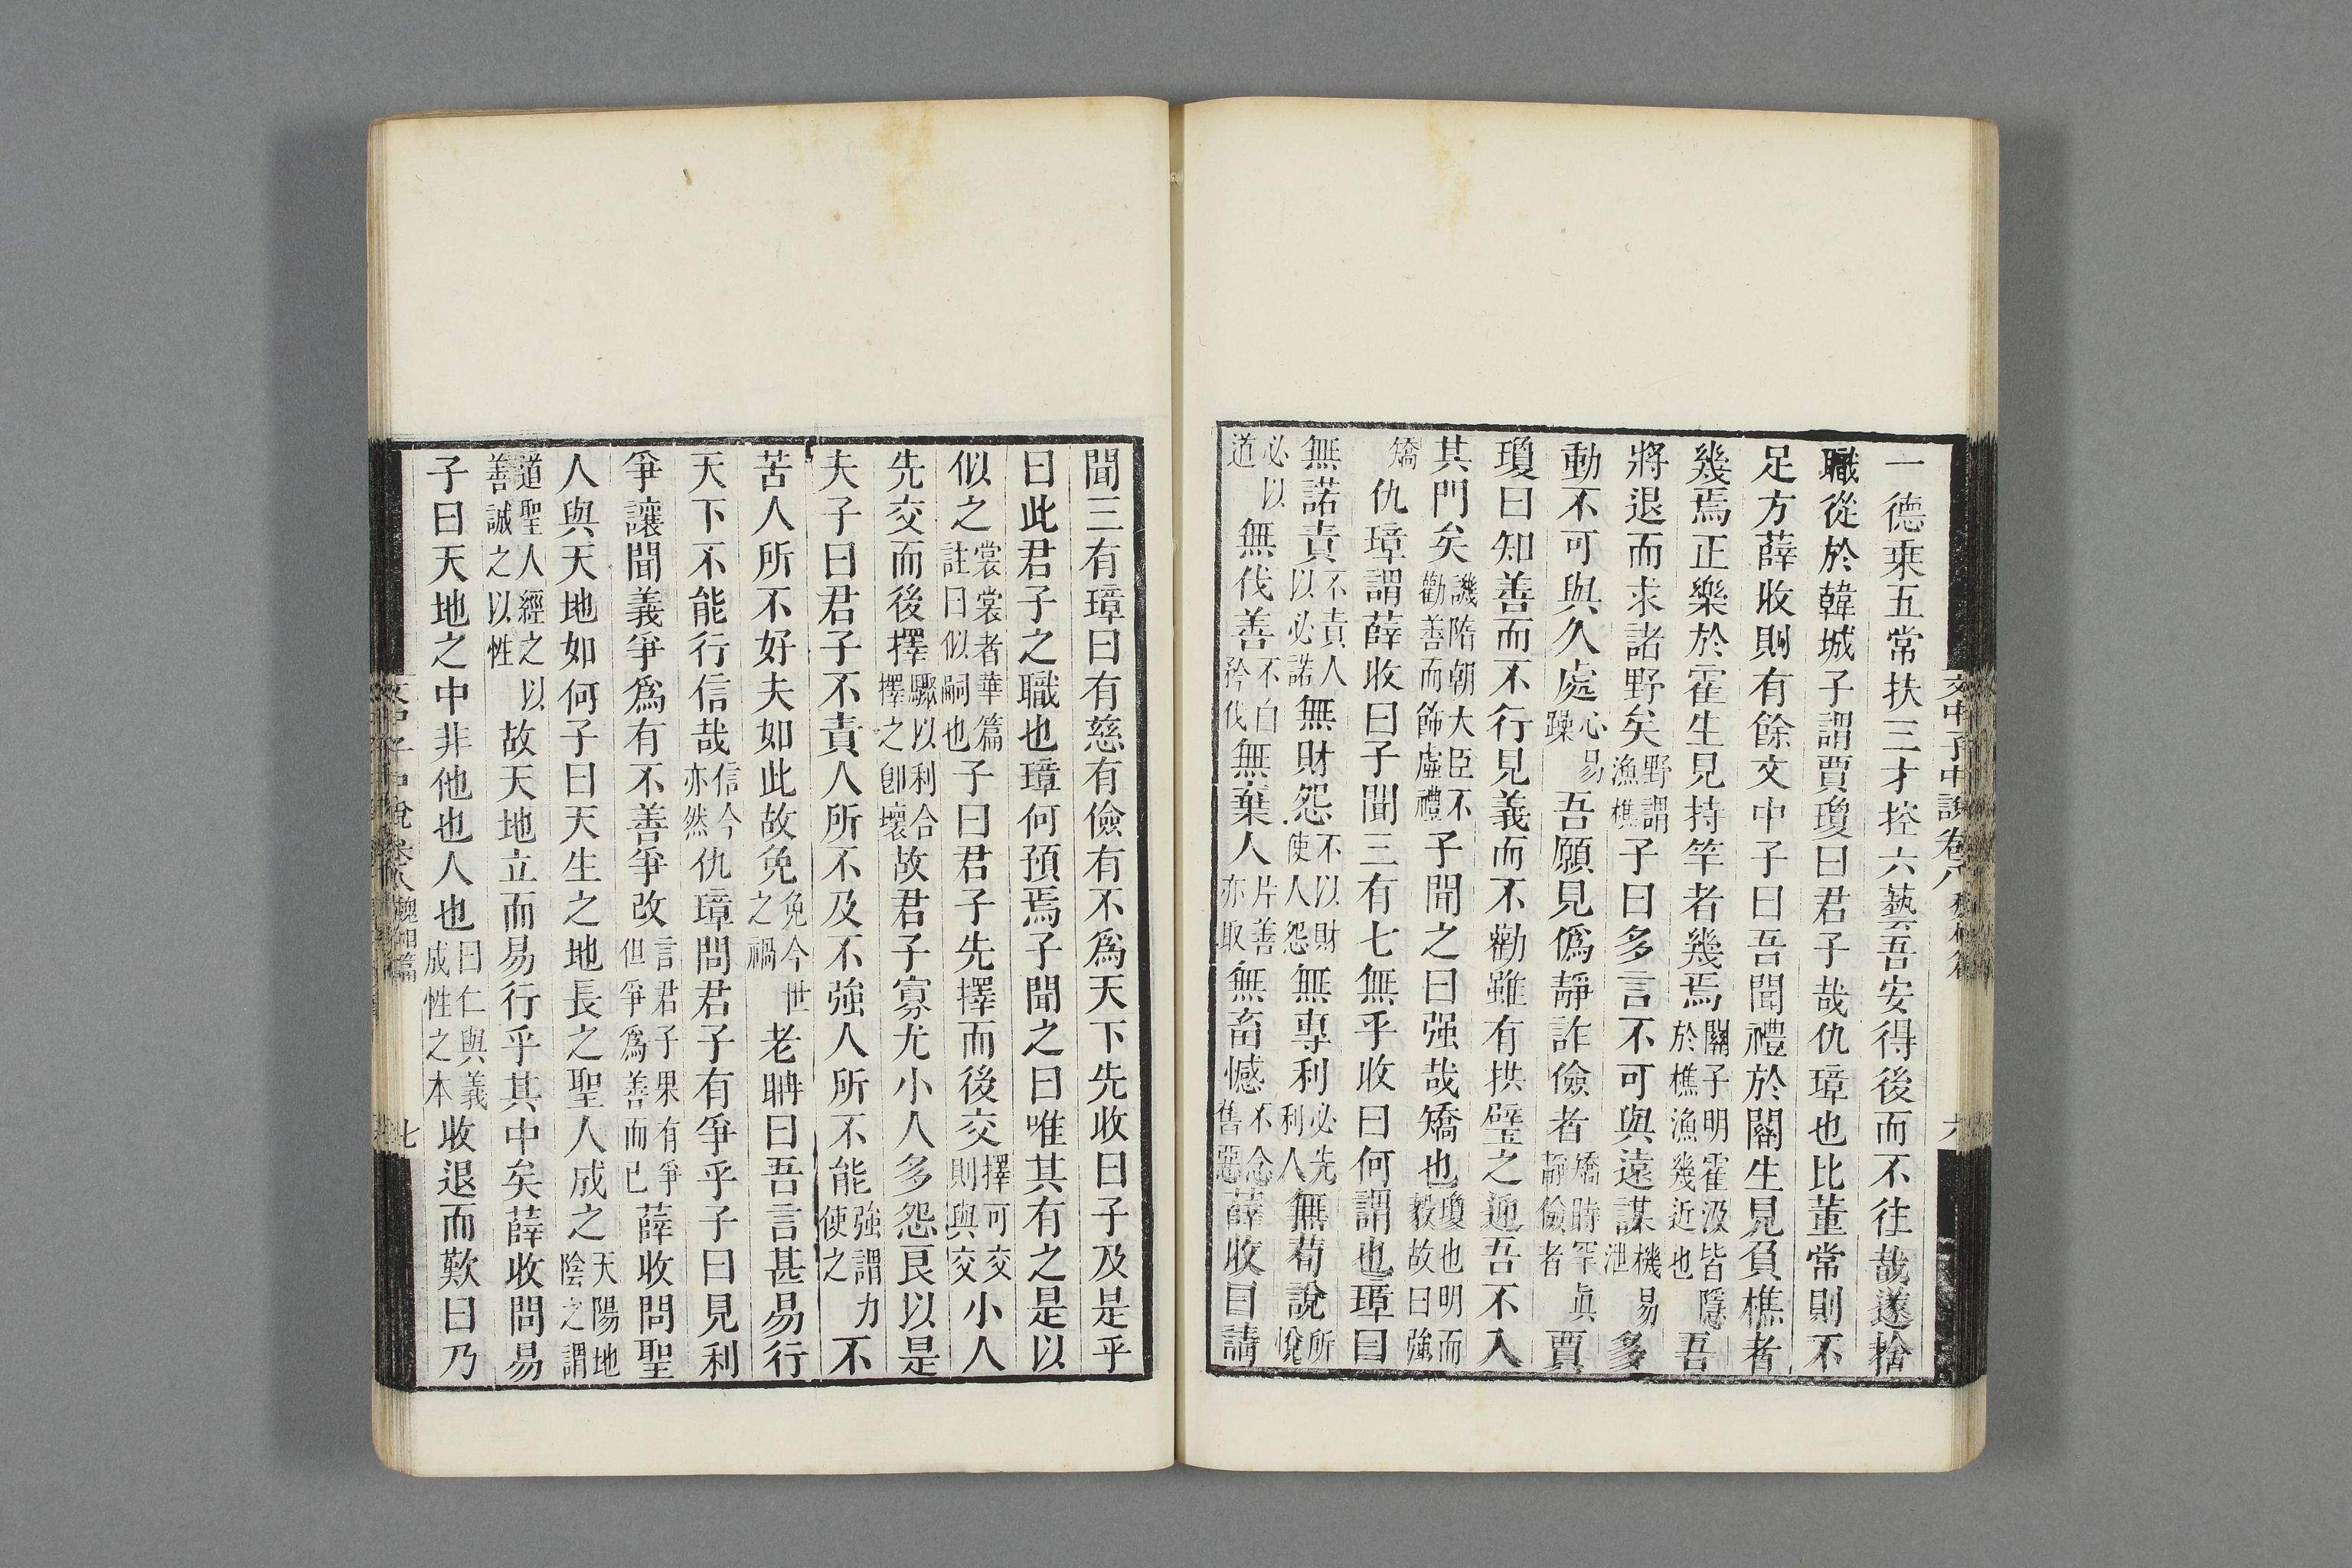 文中子中說卷八 魏相篇 六
一德乘五常扶三才控六藝吾安得後而不往哉遂捨
職從於韓城子謂賈瓊曰君子哉仇璋也比董常則不
足方薛收則有餘文中子曰吾聞禮於關生見負樵者
幾焉正樂於霍生見持竿者幾焉關子明霍汲皆隱於樵漁幾近也吾
將退而求諸野矣野謂漁樵子曰多言不可與遠謀機易泄多
動不可與久處心易躁吾願見僞靜詐儉者矯時罕眞靜儉者賈
瓊曰知善而不行見義而不勸雖有拱璧之迎吾不入
其門矣譏隋朝大臣不勸善而飾虛禮子聞之曰强哉矯也瓊也明而毅故曰強
矯仇璋謂薛收曰子聞三有七無乎收曰何謂也璋曰
無諾責不責人以必諾無財怨不以財使人怨無專利必先利人無苟說所悅
必以道無伐善不自矜伐無棄人片善亦取無畜憾不念舊惡薛收曰請
聞三有璋曰有慈有儉有不爲天下先收曰子及是乎
曰此君子之職也璋何預焉子聞之曰唯其有之是以
似之裳裳者華篇註曰似嗣也子曰君子先擇而後交擇可交則與交小人
先交而後擇驟以利合擇之卽壞故君子寡尤小人多怨良以是
夫子曰君子不責人所不及不強人所不能強謂力使之不
苦人所不好夫如此故免免今世之禍老聃曰吾言甚易行
天下不能行信哉信今亦然仇璋問君子有爭乎子曰見利
爭讓聞義爭爲有不善爭改言君子果有爭但爭爲善而已薛收問聖
人與天地如何子曰天生之地長之聖人成之天陽地陰之謂
道聖人經之以善誠之以性故天地立而易行乎其中矣薛收問易
子曰天地之中非他也人也曰仁與義成性之本收退而歎曰乃
文中子中說卷八 魏相篇 七